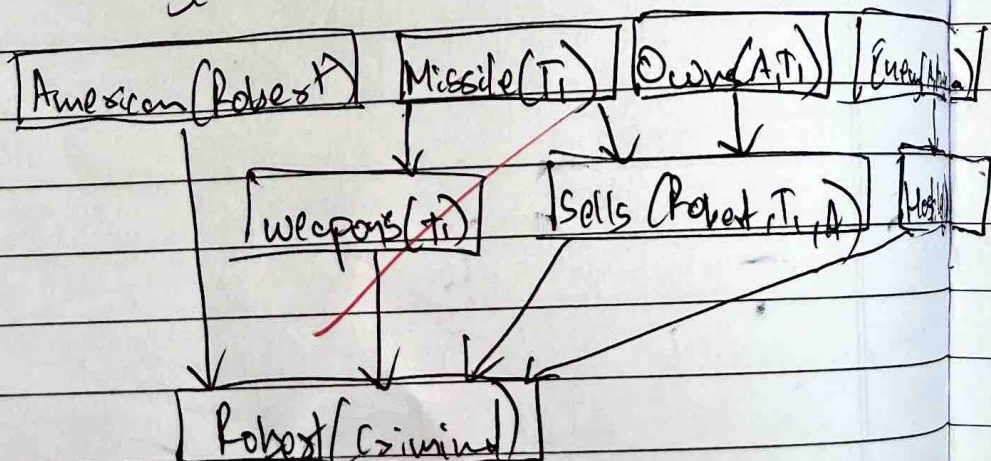 American (Robert) Missile (T1) Owns (A, T1) Enemy(
weapons (t1) Sells (Robert, T1, A)
Robert (Criminal)